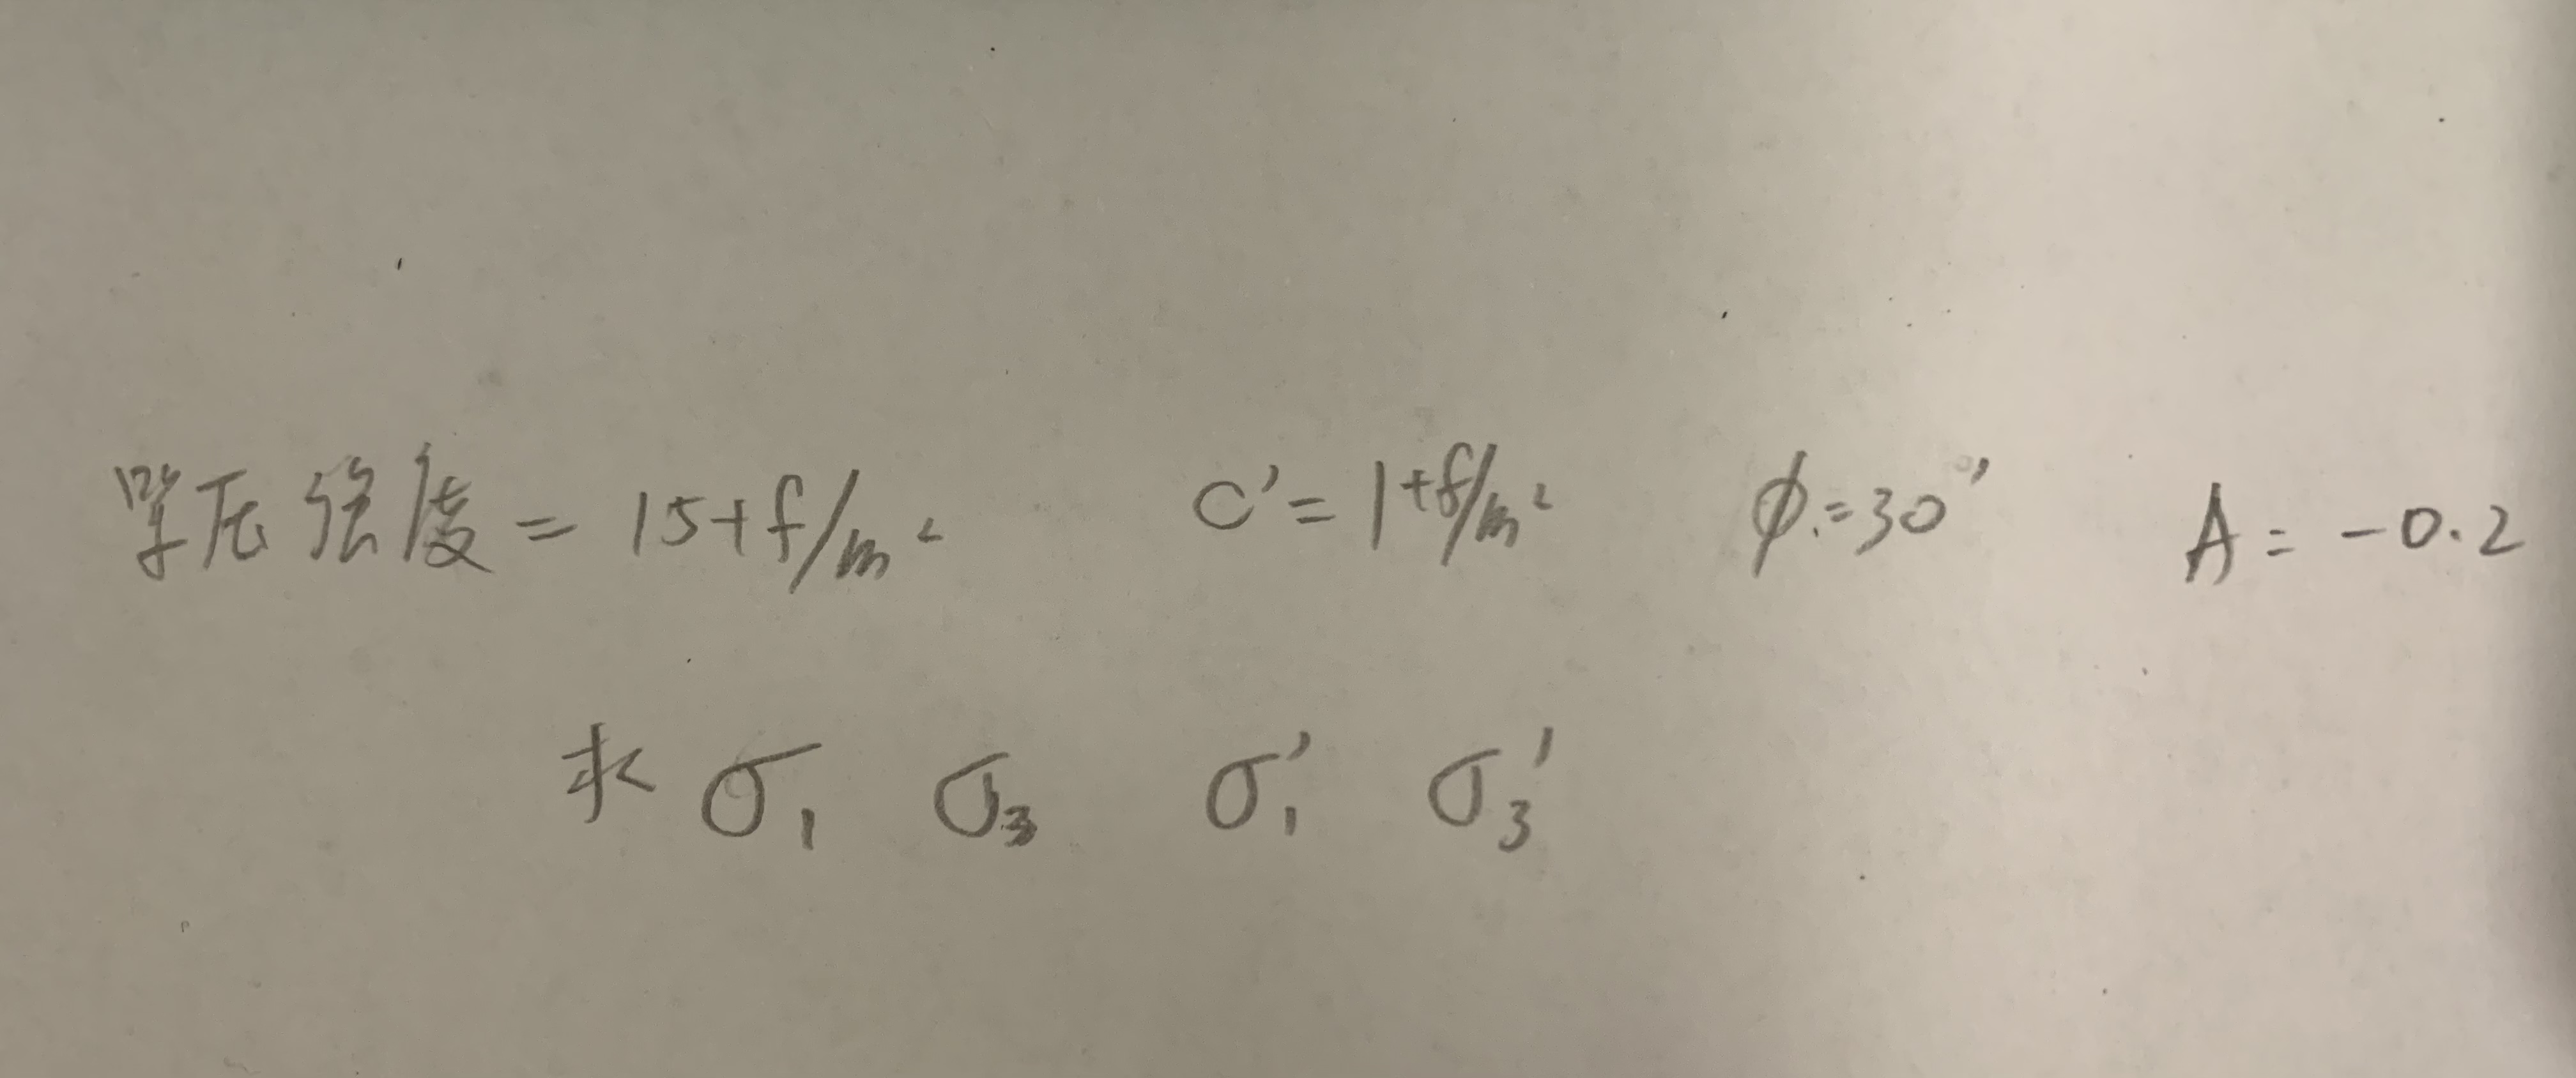 單压強度 = 15tf/m² c' = 1tf/m² φ' = 30° A = -0.2
求 σ₁ σ₃ σ₁' σ₃'